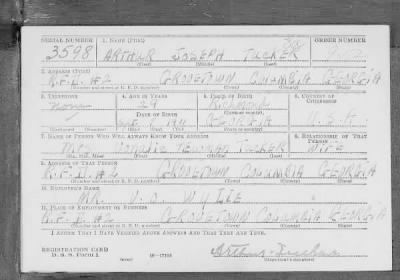 SERIAL NUMBER 1. NAME (Print) ORDER NUMBER
3598 ARTHUR JOSEPH TUCKER
(First) (Middle) (Last)
2. ADDRESS (Print)
R.F.D. #2 GROVETOWN COLUMBIA GEORGIA
(Number and street or R. F. D. number) (Town) (County) (State)
3. TELEPHONE 4. AGE IN YEARS 5. PLACE OF BIRTH 6. COUNTRY OF CITIZENSHIP
none 29 Richmond
DATE OF BIRTH (Town or county)
1911 GEORGIA U.S.A.
(Exchange) (No.) (Mo.) (Day) (Yr.) (State or country)
7. NAME OF PERSON WHO WILL ALWAYS KNOW YOUR ADDRESS 8. RELATIONSHIP OF THAT PERSON
Mrs. NEWMAN TUCKER WIFE
(Mr., Mrs., Miss) (First) (Middle) (Last)
9. ADDRESS OF THAT PERSON
R.F.D. #2 GROVETOWN COLUMBIA GEORGIA
(Number and street or R. F. D. number) (Town) (County) (State)
10. EMPLOYER'S NAME
MR. J. O. WYLIE
11. PLACE OF EMPLOYMENT OR BUSINESS
R.F.D. #2 GROVETOWN COLUMBIA GEORGIA
(Number and street or R. F. D. number) (Town) (County) (State)
I AFFIRM THAT I HAVE VERIFIED ABOVE ANSWERS AND THAT THEY ARE TRUE.
REGISTRATION CARD
D. S. S. Form 1 16—17105 Arthur Tucker
(Registrant's signature)